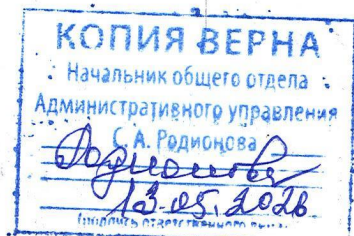 КОПИЯ ВЕРНА
Начальник общего отдела
Административного управления
С. А. Родионова
Родионова
13.05.2026
(подпись ответственного